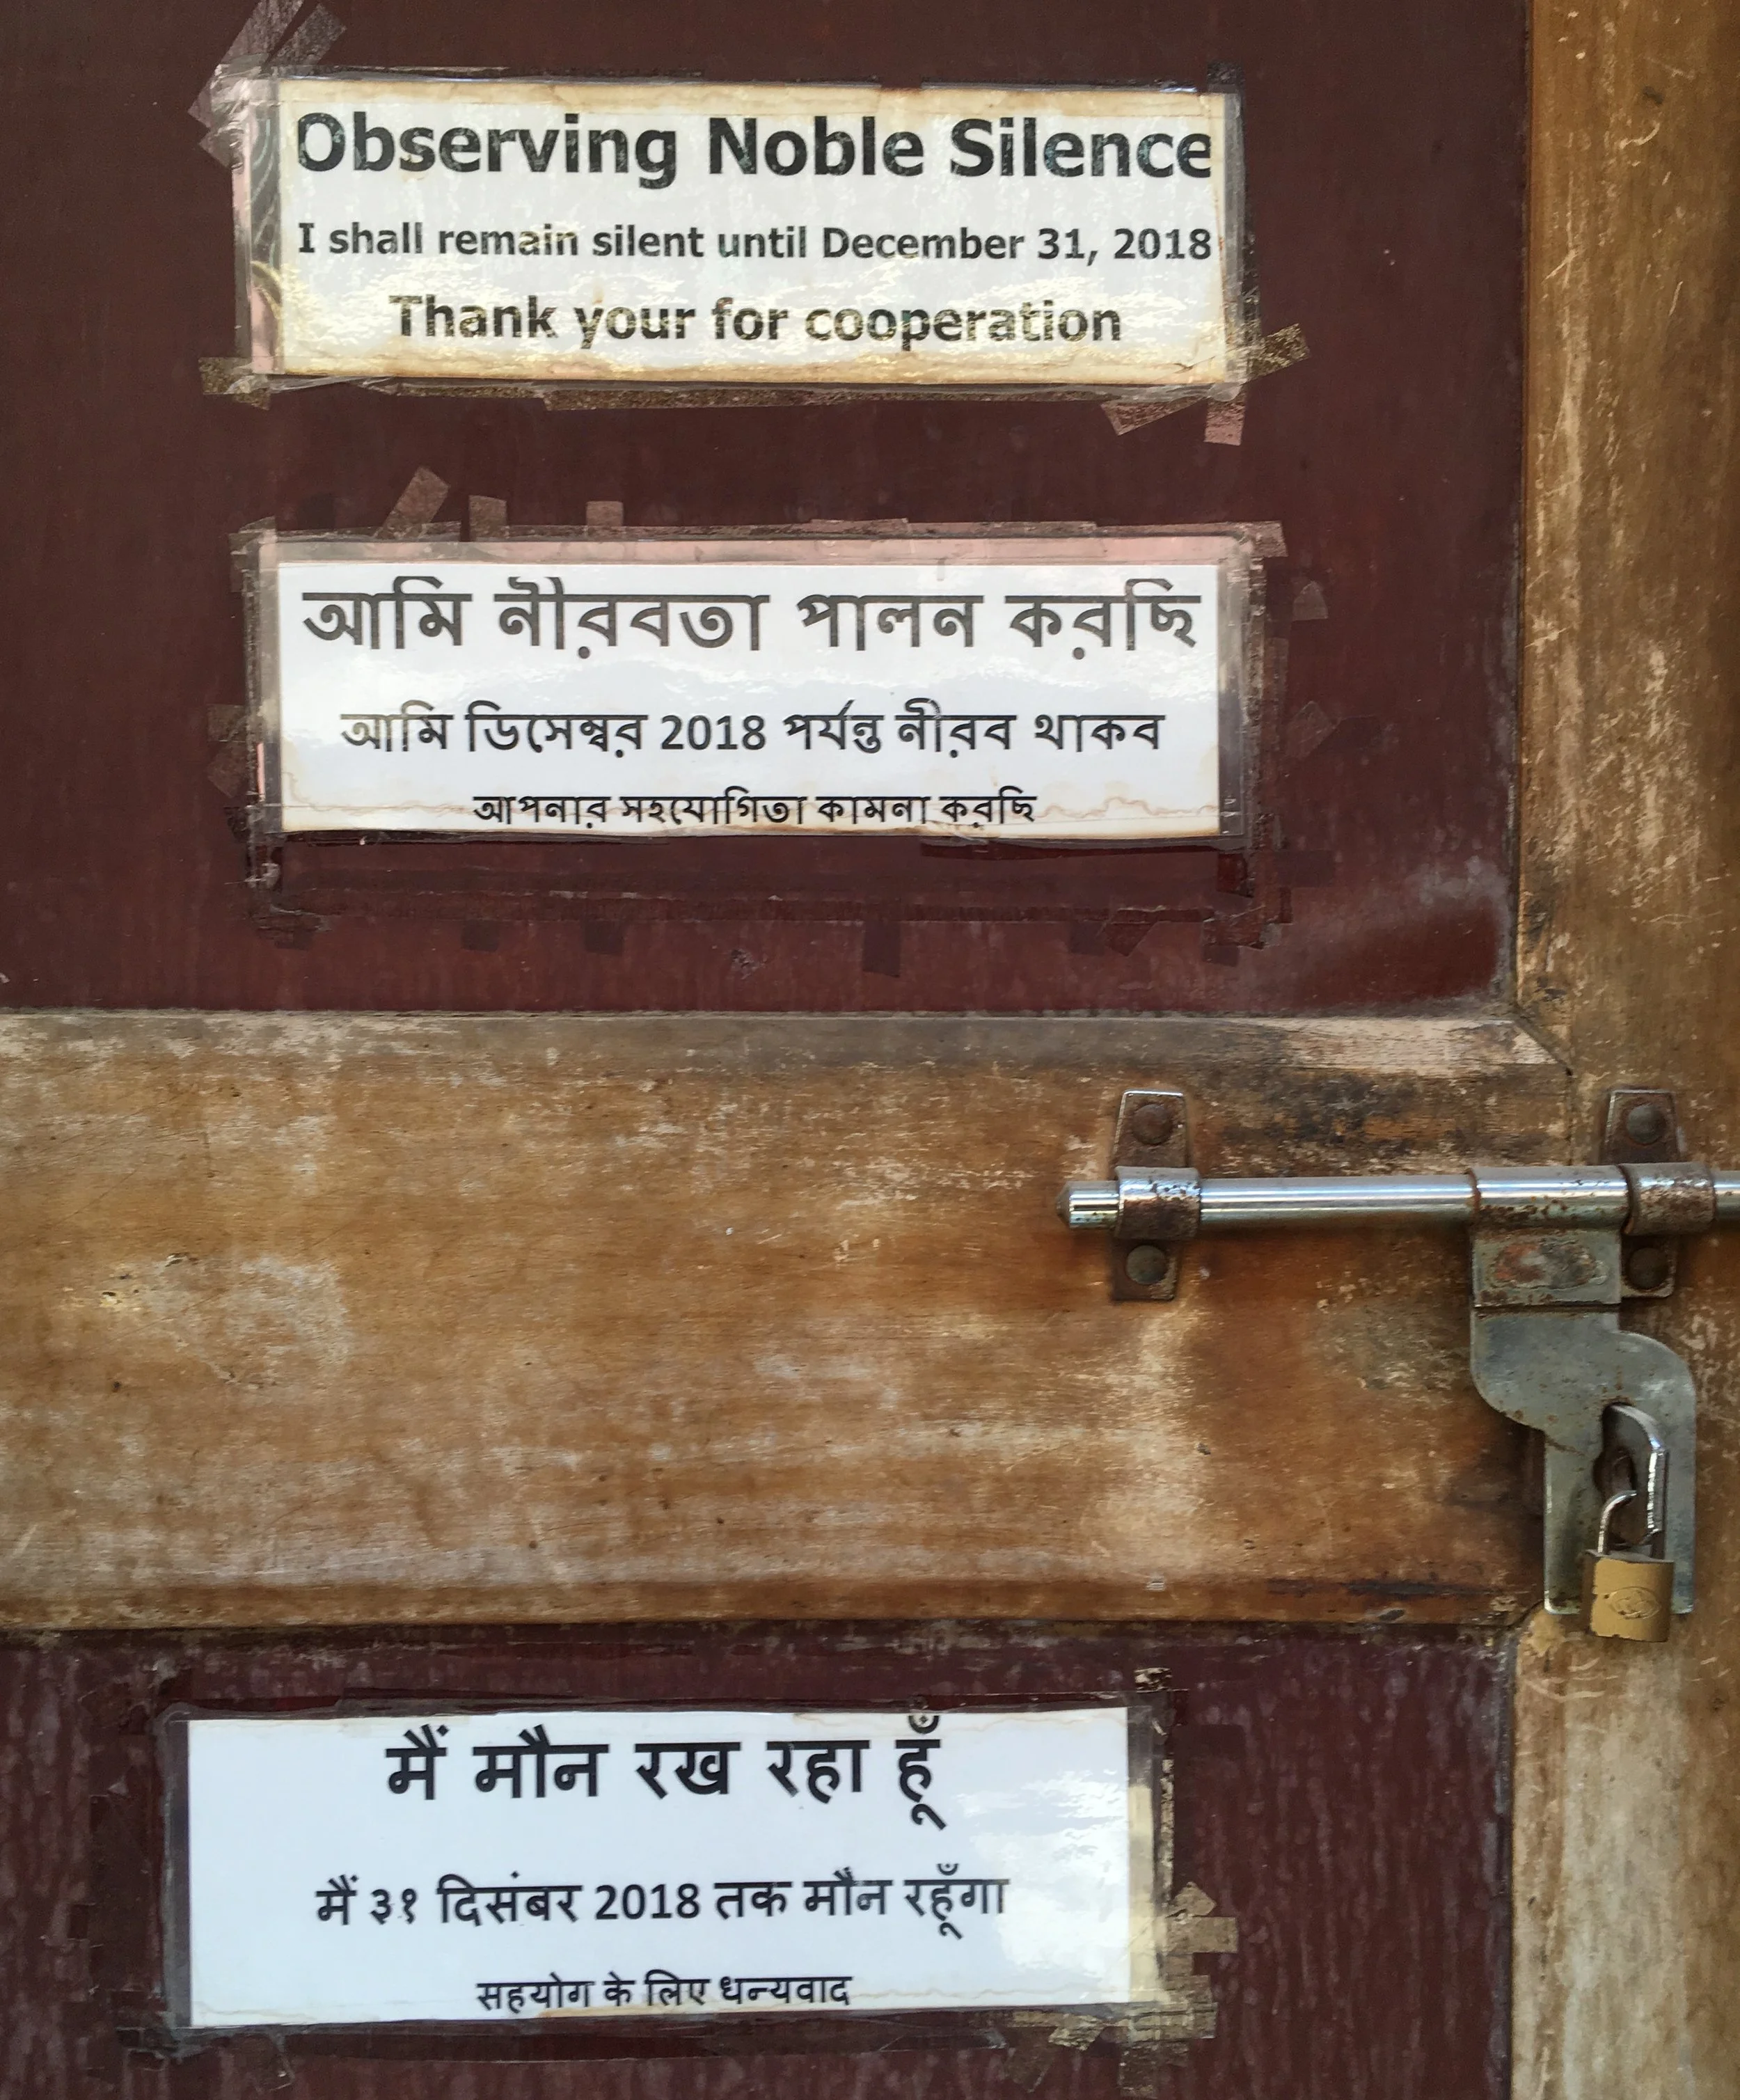 Observing Noble Silence
I shall remain silent until December 31, 2018
Thank your for cooperation
আমি নীরবতা পালন করছি
আমি ডিসেম্বর 2018 পর্যন্ত নীরব থাকব
আপনার সহযোগিতা কামনা করছি
मैं मौन रख रहा हूँ
मैं ३१ दिसंबर 2018 तक मौन रहूँगा
सहयोग के लिए धन्यवाद